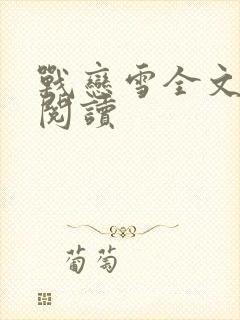 戰戀雪全文
閱讀
葡萄